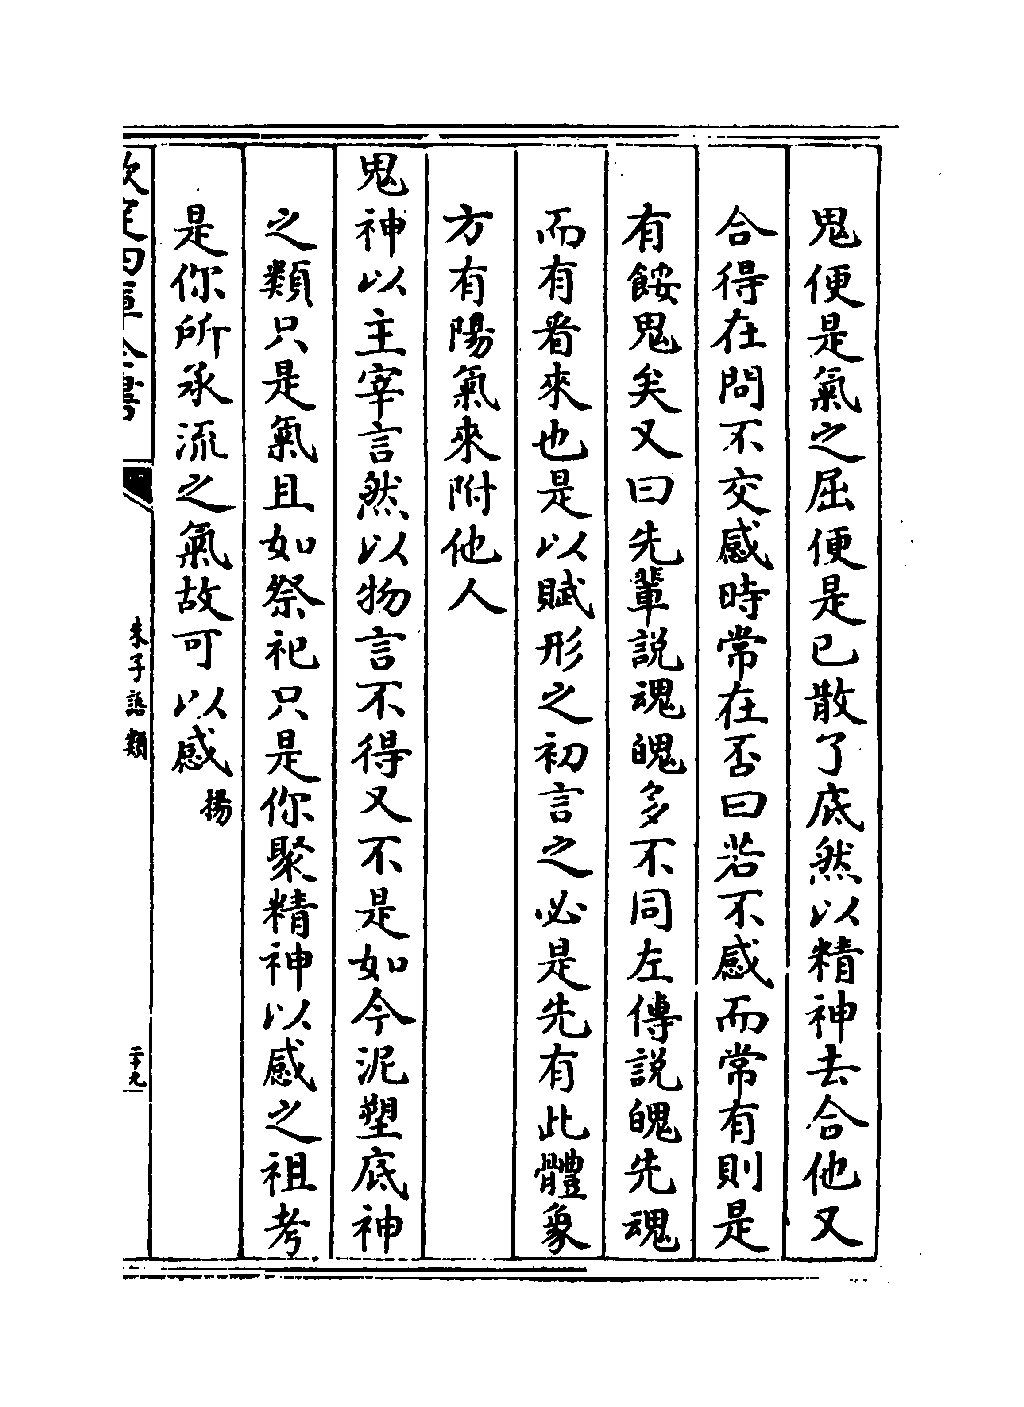 鬼便是氣之屈便是已散了底然以精神去合他又
合得在問不交感時常在否曰若不感而常有則是
有餒鬼矣又曰先輩説魂魄多不同左傳説魄先魂
而有看來也是以賦形之初言之必是先有此體象
方有陽氣來附他人
鬼神以主宰言然以物言不得又不是如今泥塑底神
之類只是氣且如祭祀只是你聚精神以感之祖考
是你所承流之氣故可以感揚
欽定四庫全書
朱子語類
二十九